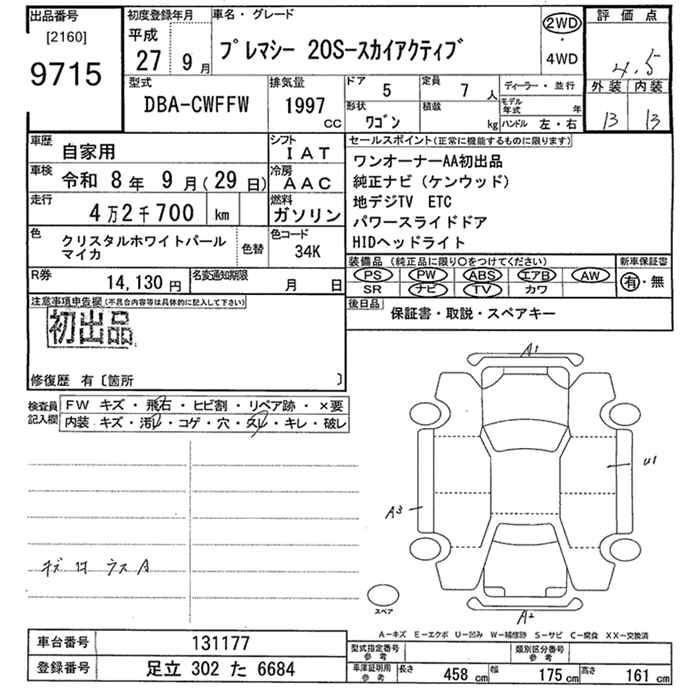 出品番号
[2160]
9715
初度登録年月
平成
27 9月
車名・グレード
プレマシー 20S-スカイアクティブ
2WD
・
4WD
評価点
4.5
外装 内装
B B
型式
DBA-CWFFW
排気量
1997 CC
ドア
5
定員
7 人
形状
ワゴン
積載
kg
ディーラー・並行
モデル年式 年
ハンドル 左・右
車歴 自家用
シフト IAT
車検 令和 8年 9月(29日)
冷房 AAC
走行 4万2千700 km
燃料 ガソリン
色 クリスタルホワイトパールマイカ
色替
色コード 34K
R券 14,130円
名変通知期限 月 日
セールスポイント(正常に機能するものに限ります)
ワンオーナーAA初出品
純正ナビ(ケンウッド)
地デジTV ETC
パワースライドドア
HIDヘッドライト
装備品 (純正品に限り○をつけてください)
PS PW ABS エアB AW
SR ナビ TV カワ
新車保証書
有・無
後日品
保証書・取説・スペアキー
注意事項申告欄(不具合内容等は具体的に記入して下さい)
初出品
修復歴 有〔箇所 〕
検査員記入欄
FW キズ・飛石・ヒビ割・リペア跡・×要
内装 キズ・汚レ・コゲ・穴・スレ・キレ・破レ
A1
U1
A3
A2
スペア
A-キズ E-エクボ U-凹み W-補修跡 S-サビ C-腐食 XX-交換済
車台番号 131177
登録番号 足立 302 た 6684
型式指定番号 参考
類別区分番号 参考
車庫証明用 参考
長さ 458 cm
幅 175 cm
高さ 161 cm